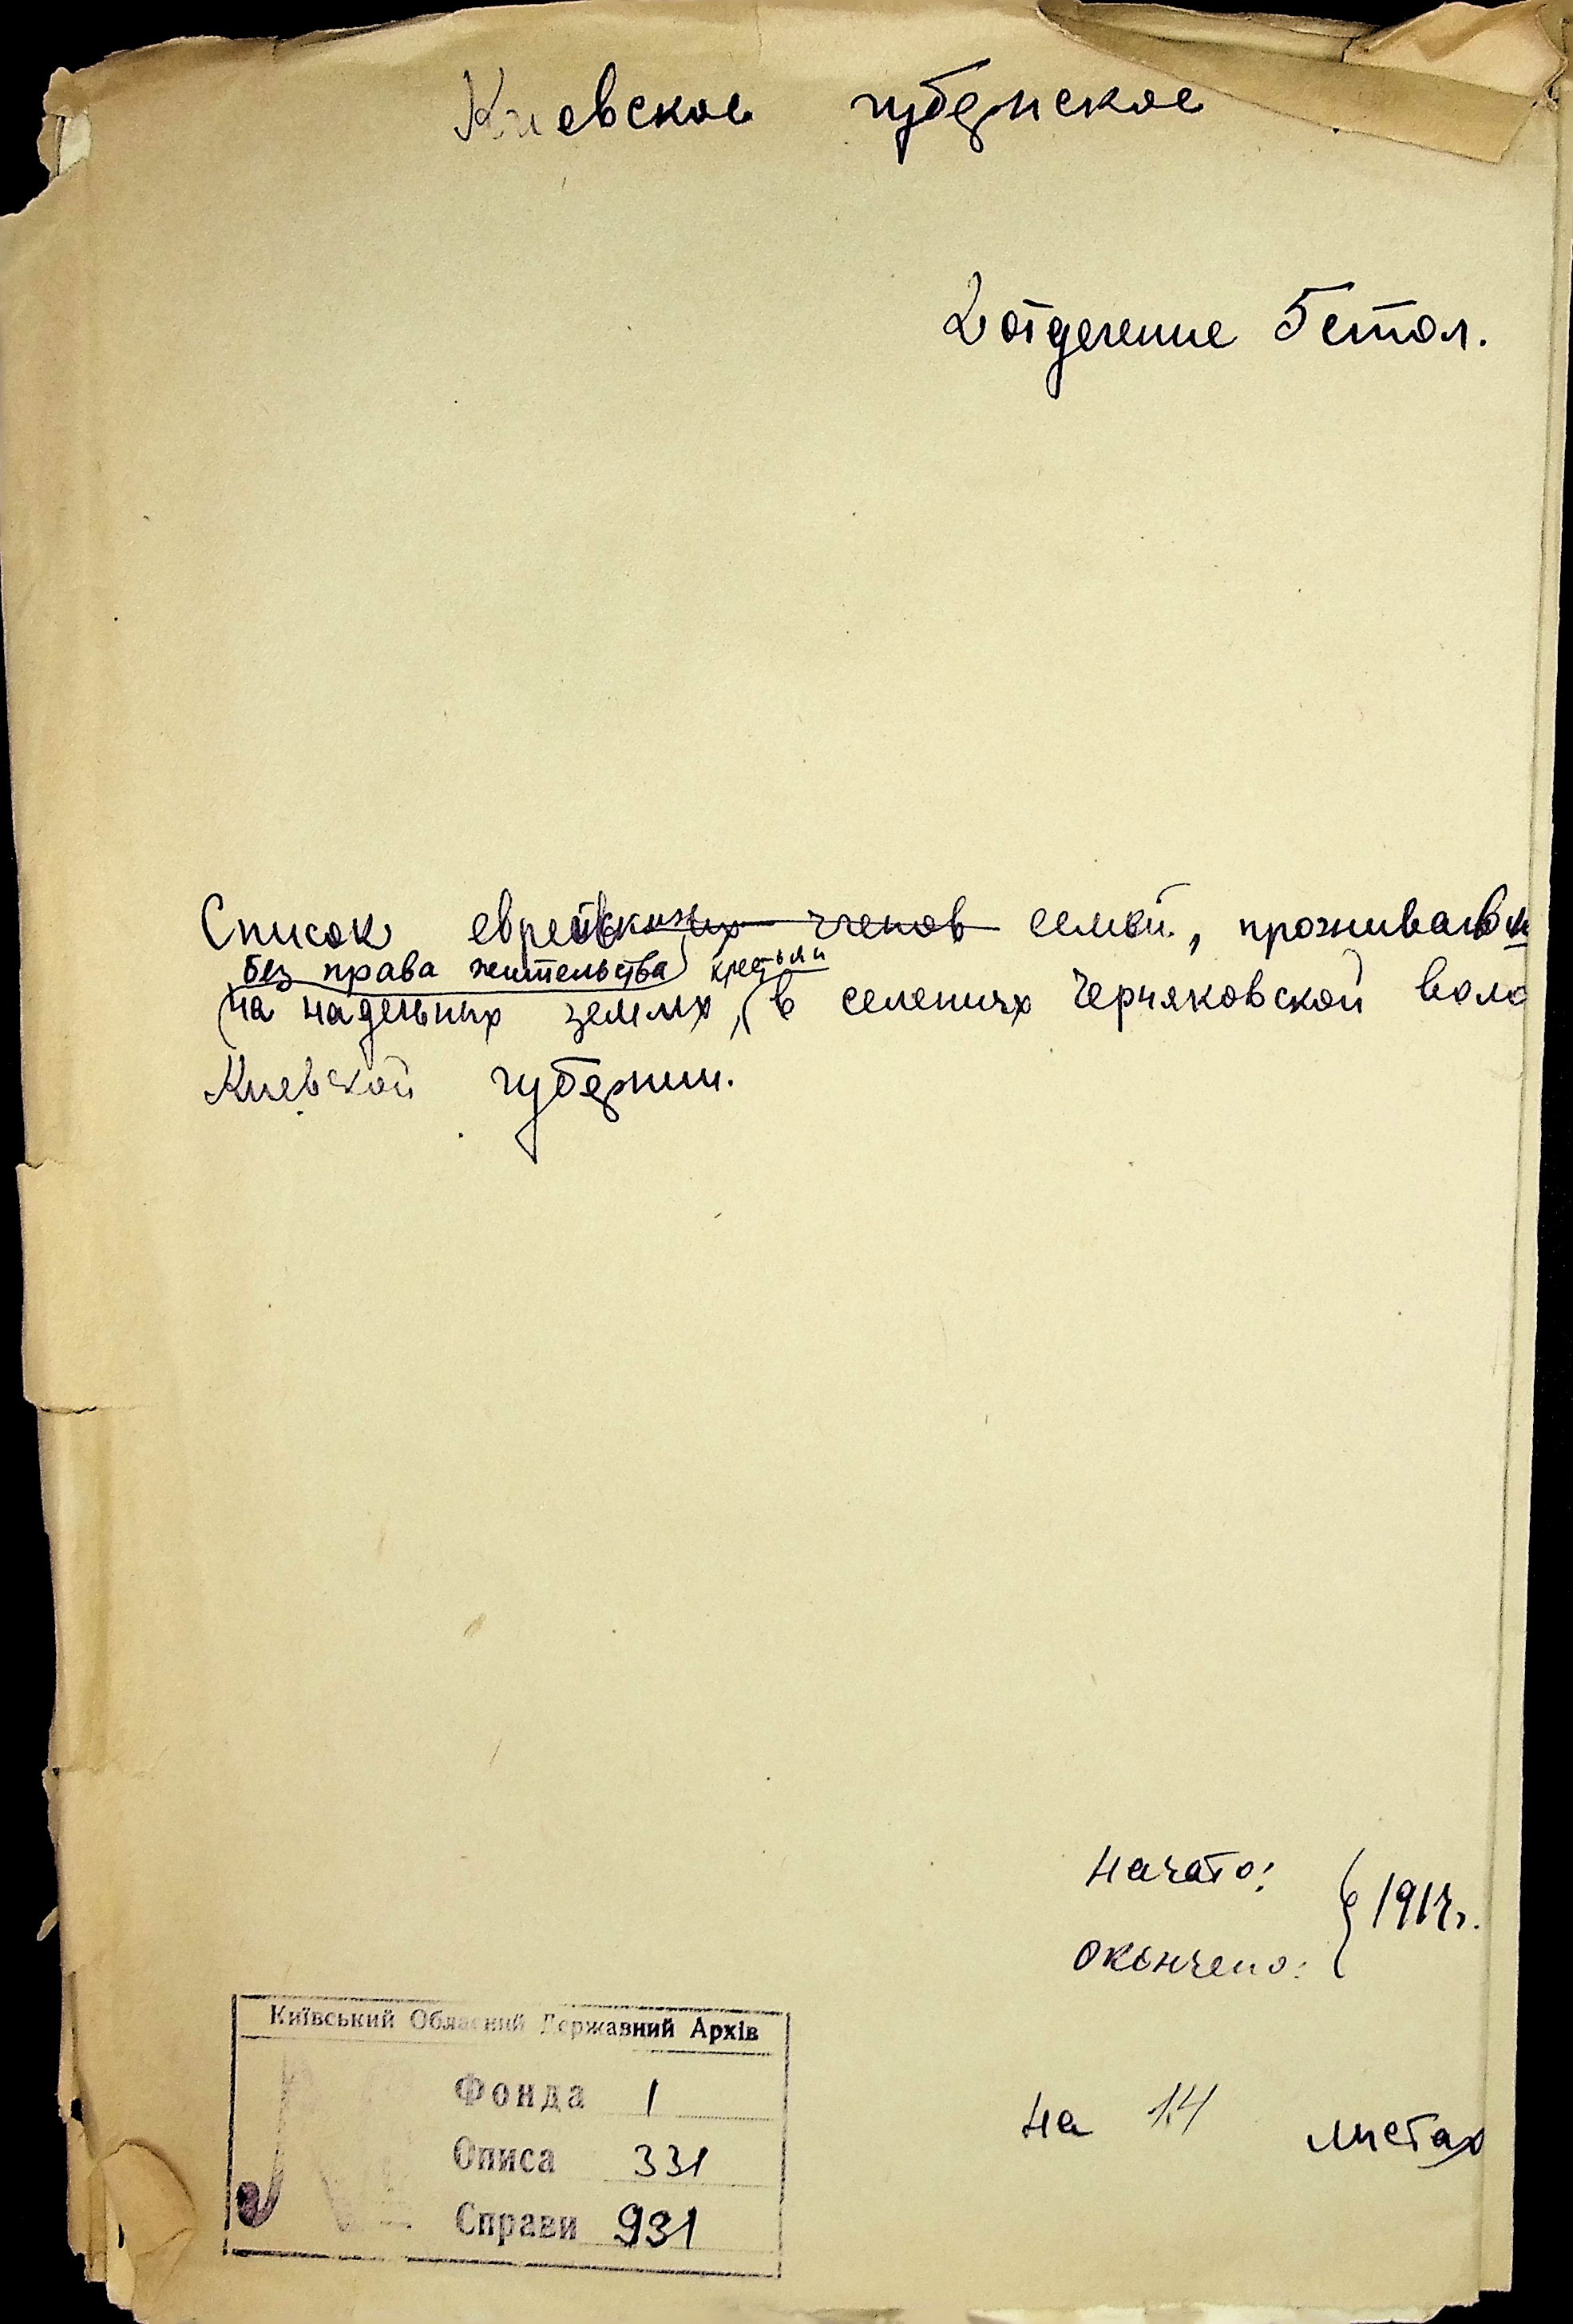 Киевское губернское
2 отделение 5 стол.
Список еврейских членов семей, проживающ
без права жительства крестьян
на надельных землях, в селениях Черняковской воло
Киевской губернии.
Начато:
1917г.
Окончено:
Київський Обласний Державний Архів
Фонда 1
Описа 331
Справи 931
на 14 листах